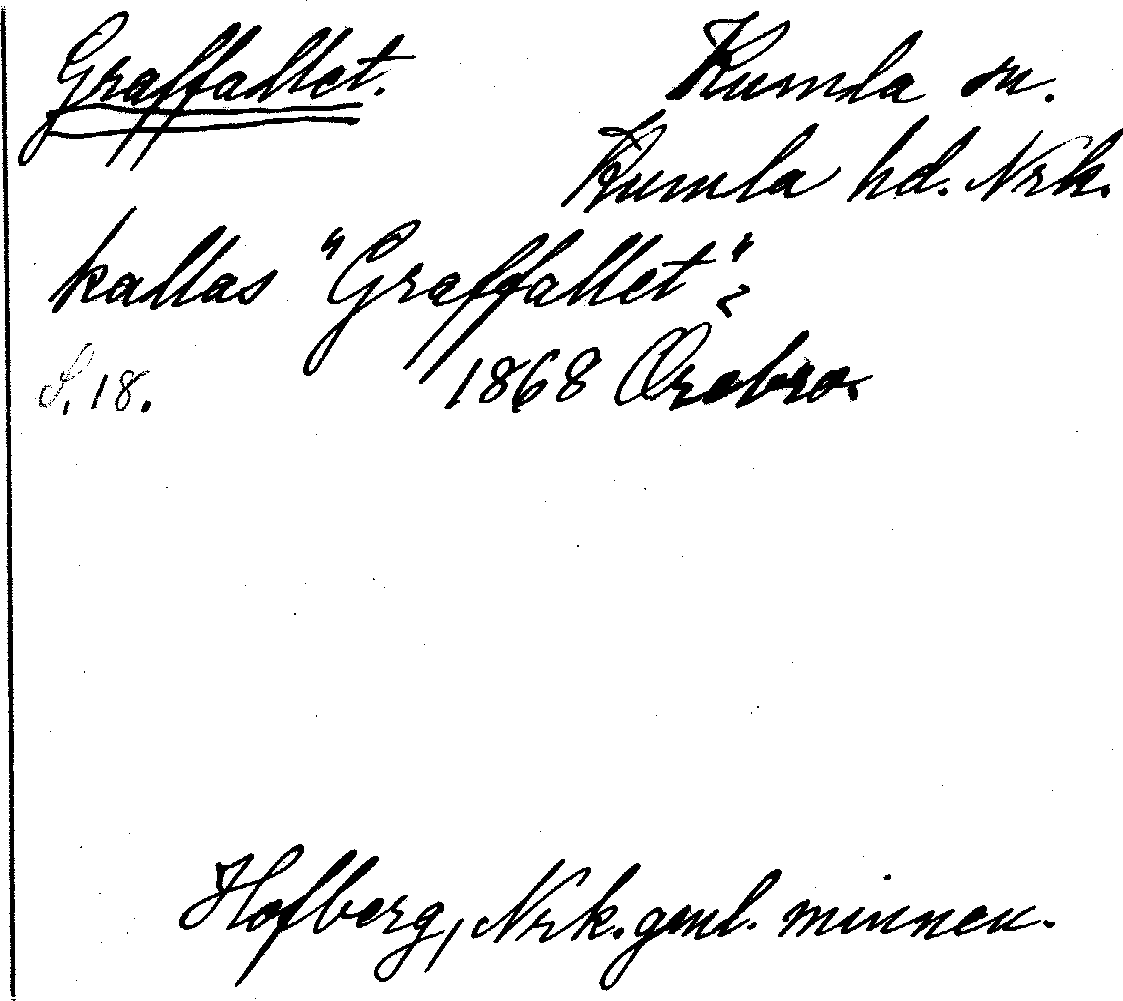 Graffallet. Kumla sn.
Kumla hd. Nrk.
kallas "Graffallet";
S. 18. 1868 Örebro.
Hofberg, Nrk. gml. minnen.